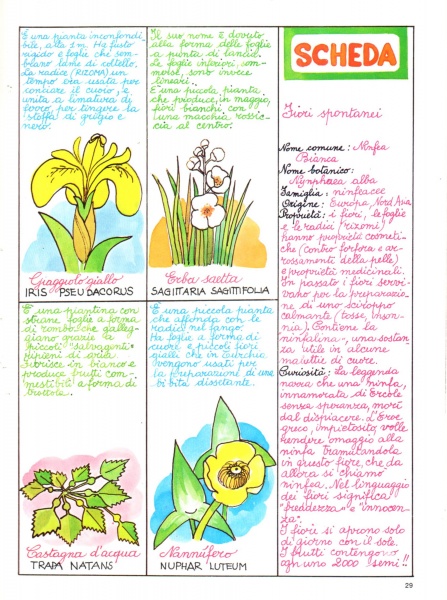 È una pianta inconfondi-
bile, alta 1 m. Ha fusto
rigido e foglie che sem-
brano lame di coltello.
La radice (RIZOMA) un
tempo era usata per
conciare il cuoio, e
unita a limatura di
ferro, per tingere la
stoffa di grigio e
nero.
Giaggiolo giallo
IRIS PSEUDACORUS
Il suo nome è dovuto
alla forma delle foglie
a punta di lancia.
Le foglie inferiori, som-
merse, sono invece
lineari.
È una piccola pianta
che produce, in maggio,
fiori bianchi con
una macchia rossic-
cia al centro.
Erba saetta
SAGITTARIA SAGITTIFOLIA
È una piantina con
strane foglie a forma
di rombo che galleg-
giano grazie a
piccoli "salvagenti"
ripieni di aria.
Fiorisce in bianco e
produce frutti com-
mestibili a forma di
trottola.
Castagna d'acqua
TRAPA NATANS
È una piccola pianta
che affonda con le
radici nel fango.
Ha foglie a forma di
cuore e piccoli fiori
gialli che in Turchia
vengono usati per
la preparazione di una
bibita dissetante.
Nannufero
NUPHAR LUTEUM
SCHEDA
Fiori spontanei
Nome comune: Ninfea
Bianca
Nome botanico:
Nymphaea alba
Famiglia: ninfeacee
Origine: Europa, Nord Asia
Proprietà: i fiori, le foglie
e le radici (rizomi)
hanno proprietà cosmeti-
che (contro forfora e ar-
rossamenti della pelle)
e proprietà medicinali.
In passato i fiori servi-
vano per la preparazio-
ne di uno sciroppo
calmante (tosse, inson-
nia). Contiene la
ninfalina, una sostan-
za utile in alcune
malattie di cuore.
Curiosità: La leggenda
narra che una ninfa,
innamorata di Ercole
senza speranza, morì
dal dispiacere. L'Eroe
greco, impietosito, volle
rendere omaggio alla
ninfa tramutandola
in questo fiore, che da
allora si chiamò
ninfea. Nel linguaggio
dei fiori significa
"freddezza" e "innocen-
za".
I fiori si aprono solo
di giorno con il sole.
I frutti contengono
ogni uno 2000 semi!!
29